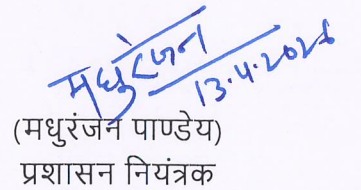 मधुरंजन
13.4.2026
(मधुरंजन पाण्डेय)
प्रशासन नियंत्रक